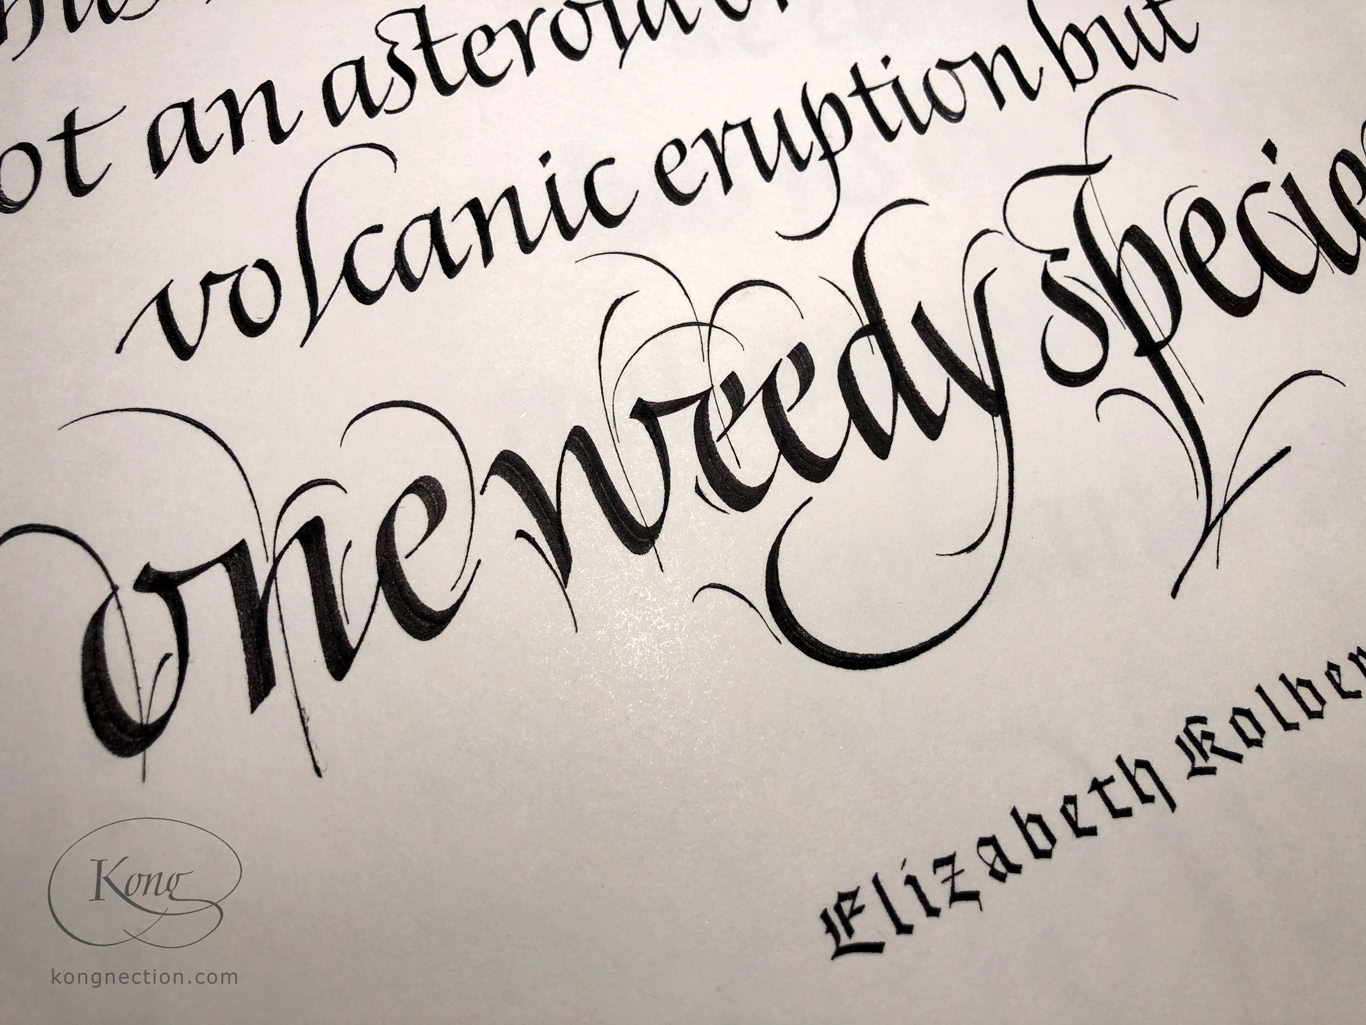 ot an asteroid
volcanic eruption but
one weedy specie
Elizabeth Kolber
Kong
kongnection.com